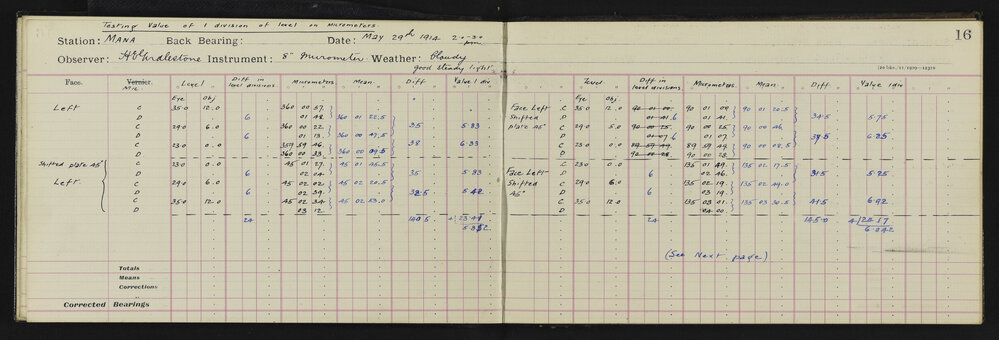 Testing Value of 1 division of level on Micrometers.
16
Station: MANA Back Bearing: Date: May 29th 1914 2.0-30 pm
Observer: Instrument: 8" Micrometer Weather: Cloudy
good steady light
Face. Vernier. Mic Level Diff in level divisions Micrometers Mean. Diff Value 1 div
Level Diff in level divisions Micrometers Mean Diff Value 1 div
Eye Obj
Eye Obj
Left C 35.0 12.0 360 00 57.
D 6 01 48. 360 01 22.5
C 29.0 6.0 360 00 22. 35 5.83
D 6 01 13. 360 00 47.5
C 23.0 0.0 359 59 46. 38 6.33
D 360 00 33. 360 00 09.5
Shifted plate 45° C 23.0 0.0 45 01 27. 45 01 45.5
D 6 02 04. 35 5.83
Left C 29.0 6.0 45 02 02 45 02 20.5
D 6 02 39. 32.5 5.42
C 35.0 12.0 45 02 34. 45 02 53.0
D 03 12.
24 140.5 4 23.41
Face Left C 35.0 12.0 90 01 00 90 01 00 90 01 20.5
Shifted D 01 41 6 01 41. 34.5 5.75
plate 45° C 29.0 5.0 90 00 25 90 00 25 90 00 46.
D 01 07 6 01 07. 37.5 6.25
C 23.0 0.0 89 59 49 89 59 49 90 00 08.5
D 90 00 28 90 00 28.
C 23.0 0.0 135 01 49. 135 02 17.5
Face Left D 6 02 46. 31.5 5.25
Shifted C 29.0 6.0 135 02 19. 135 02 49.0
45° D 6 03 19. 41.5 6.92
C 35.0 12.0 135 03 01. 135 03 30.5
D 04 00.
24 145.0 4 24.17
6.042
(See Next page)
Totals
Means
Corrections
Corrected Bearings